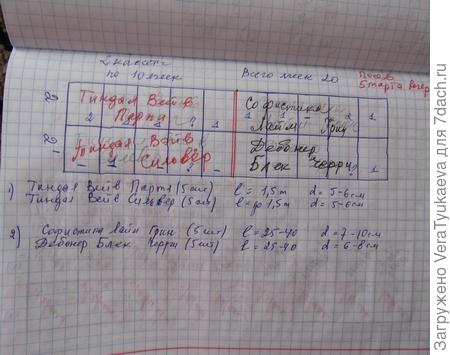 2 кассеты
по 10 ячеек
Всего ячеек 20
Посев
5 марта вечер
Тиндал Вейв
Перпл
2 1 1
Софистика
Лайм Грин
Тиндал Вейв
Сильвер
Дебонер
Блек Черри
1) Тиндал Вейв Перпл (5 шт) l = 1,5 м d = 5-6 см
Тиндал Вейв Сильвер (5 шт) l = до 1,5 м d = 5-6 см
2) Софистика Лайм Грин (5 шт) l = 25-40 d = 7-10 см
Дебонер Блек Черри (5 шт) l = 25-40 d = 6-8 см
Загружено VeraTyukaeva для 7dach.ru